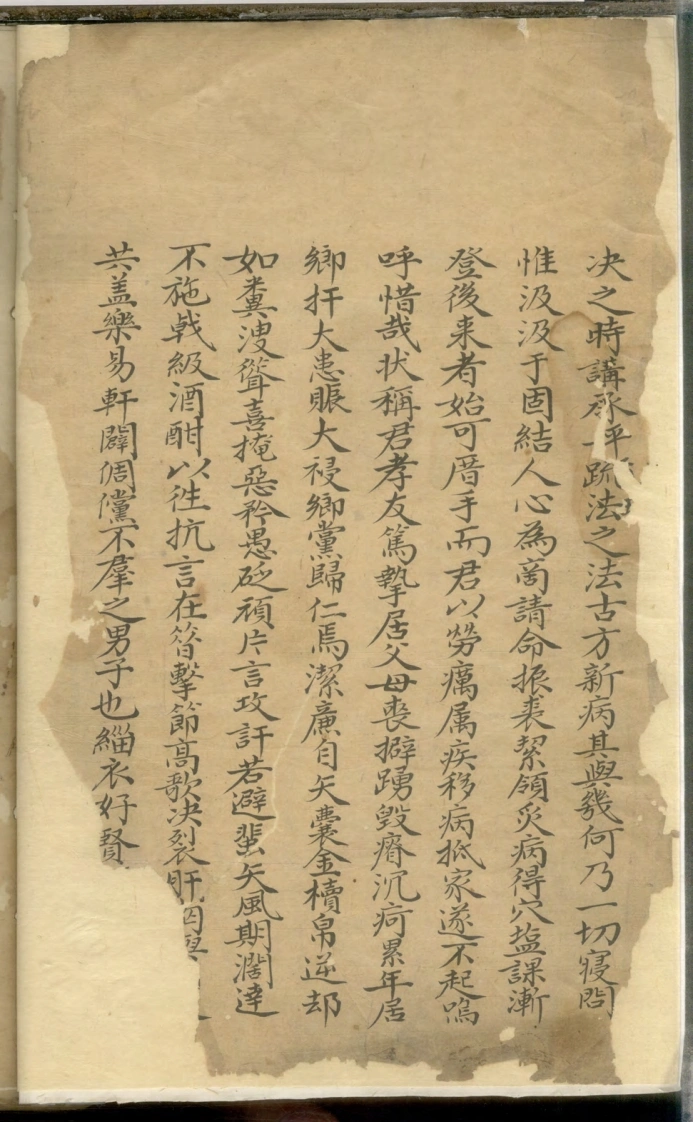 决之時講承平疏法之法古方新病其與幾何乃一切寢閣
惟汲汲于固結人心為商請命振裘絜領灸病得穴塩課漸
登後来者始可厝手而君以勞癘属疾移病抵家遂不起嗚
呼惜哉状稱君孝友篤摯居父母喪擗踴毀瘠沉疴累年居
鄉扞大患賑大祲鄉黨歸仁焉潔廉自矢囊金櫝帛逆却
如糞溲聳喜掩惡矜愚砭頑片言攻訐若避蜚矢風期濶達
不施戟級酒酣以徃抗言在昝擊節高歌决裂肝
共盖樂易軒闢倜儻不羣之男子也緇衣好賢